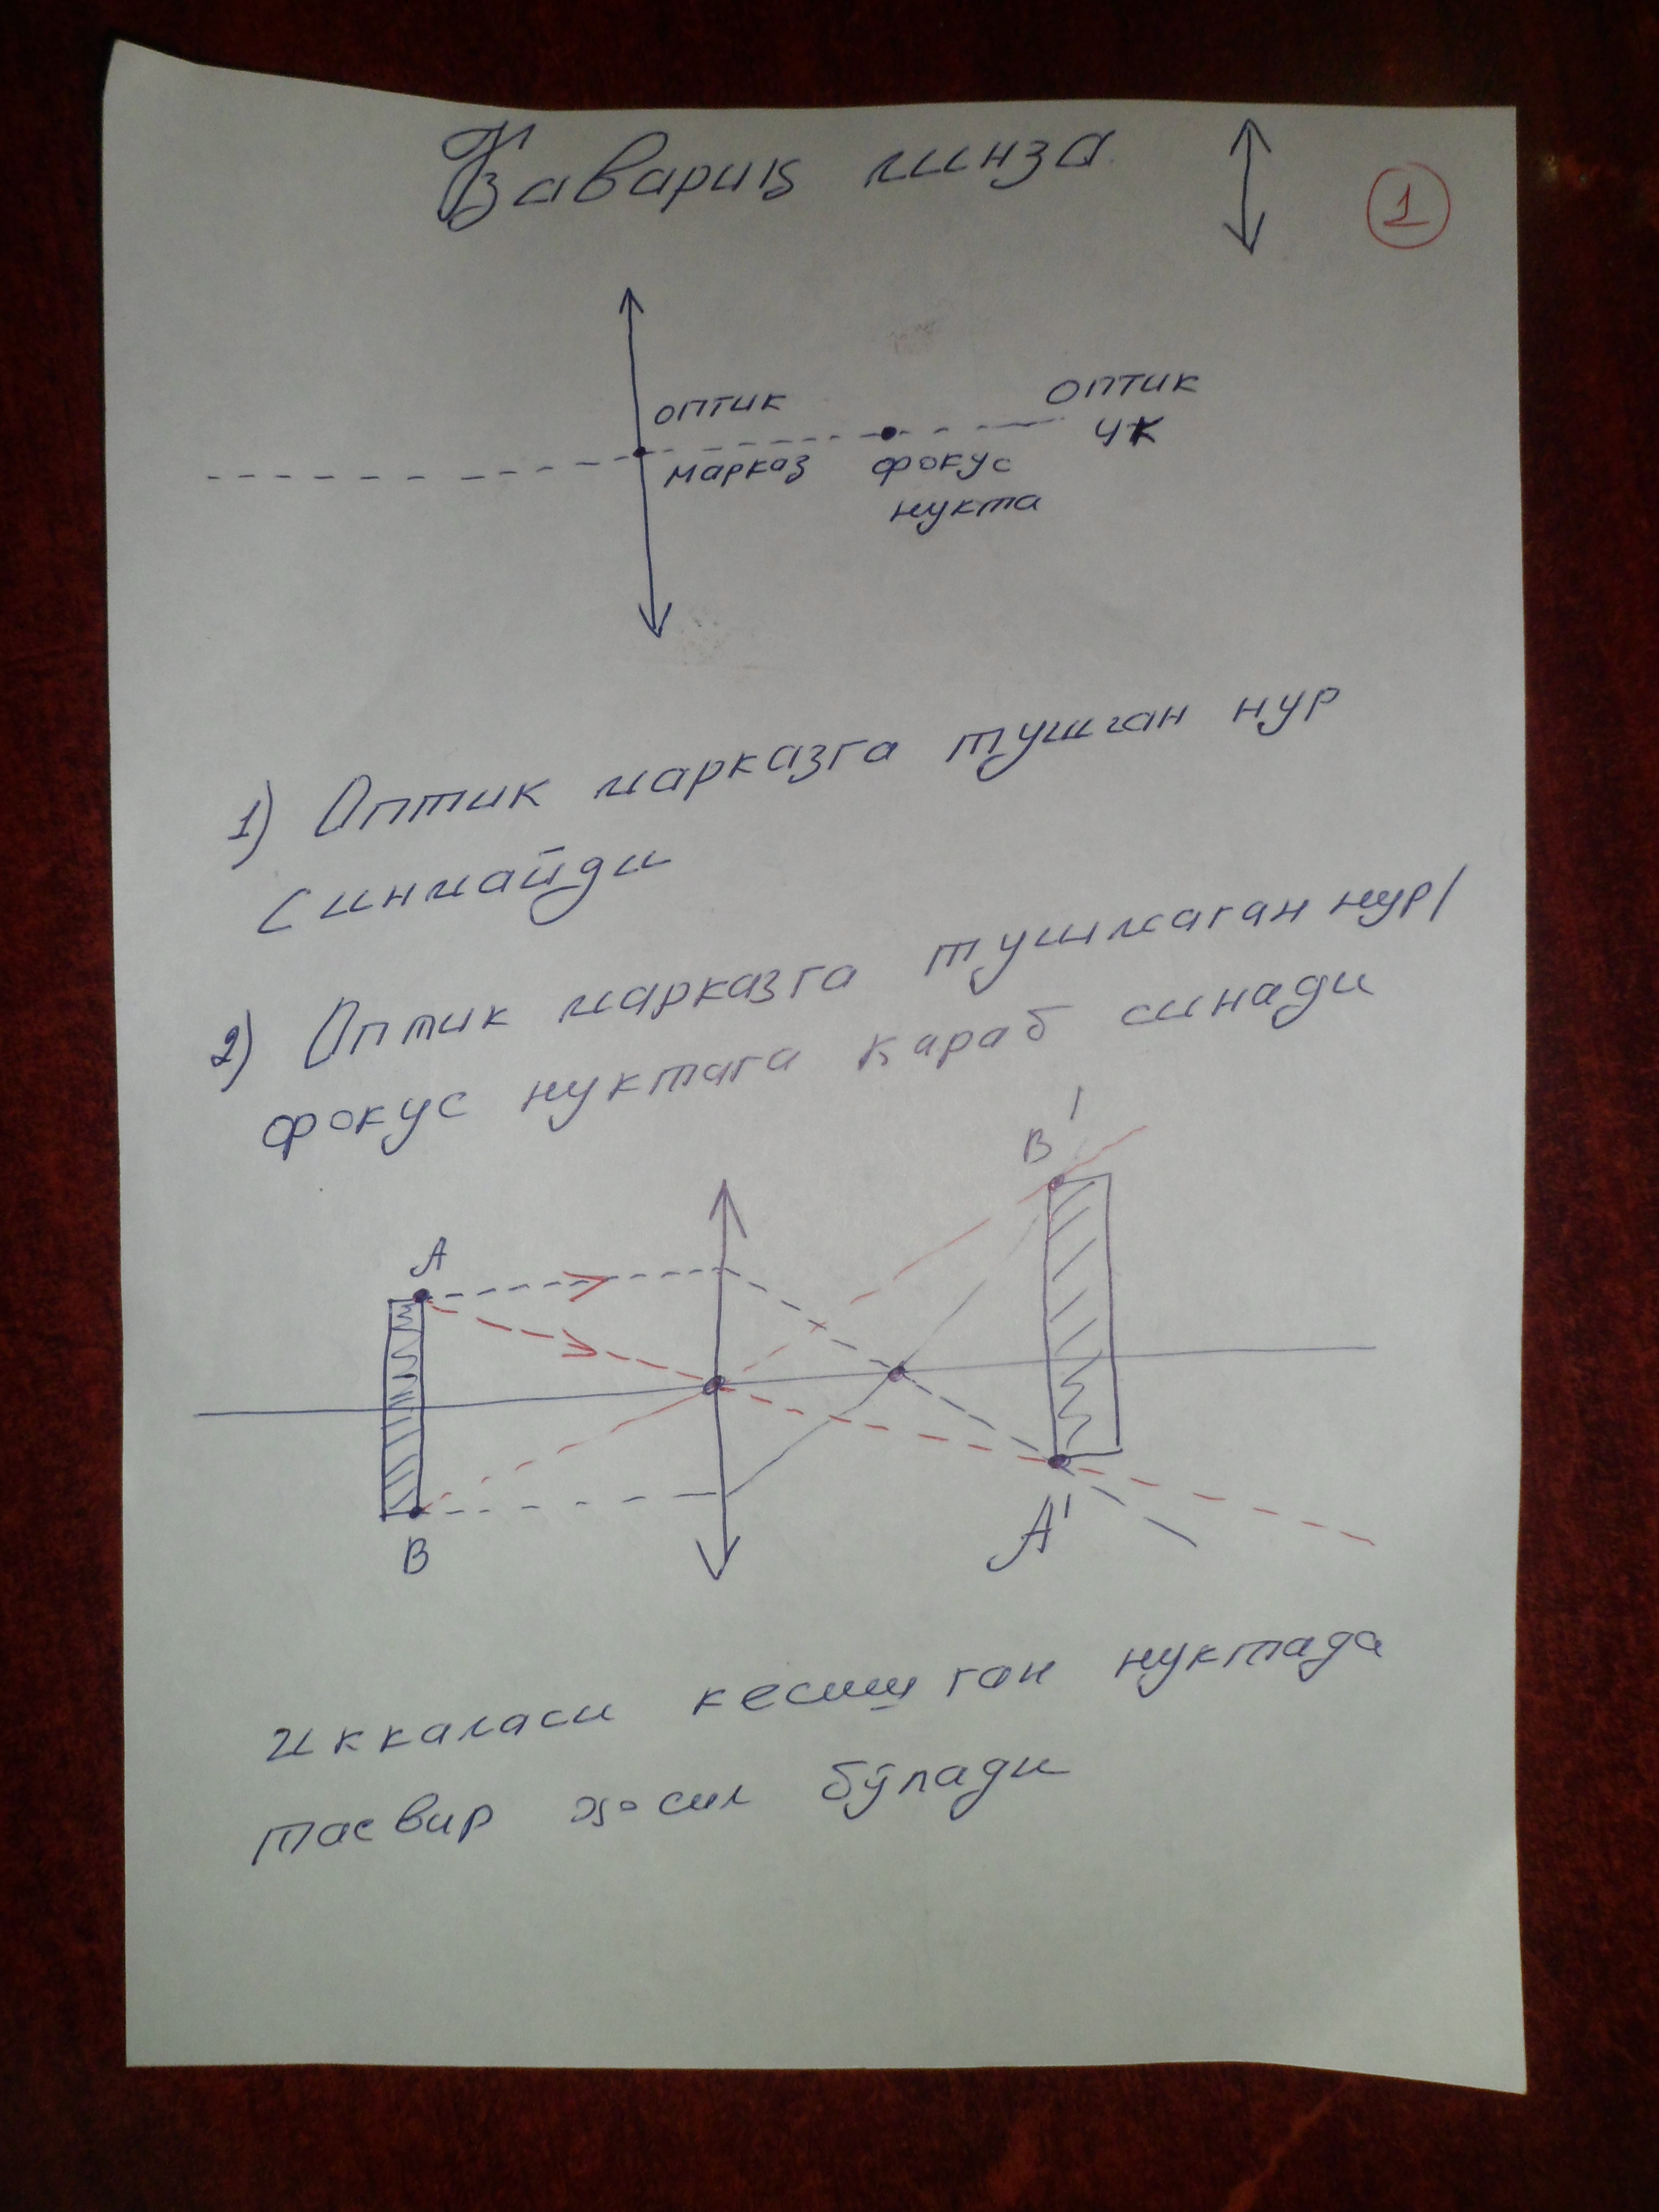 Қавариқ линза
1
оптик
марказ
фокус
нукта
оптик
ук
1) Оптик марказга тушган нур
синмайди
2) Оптик марказга тушмаган нур/
фокус нуктага караб синади
B'
A
B
A'
иккаласи кесишган нуктада
тасвир ҳосил бўлади